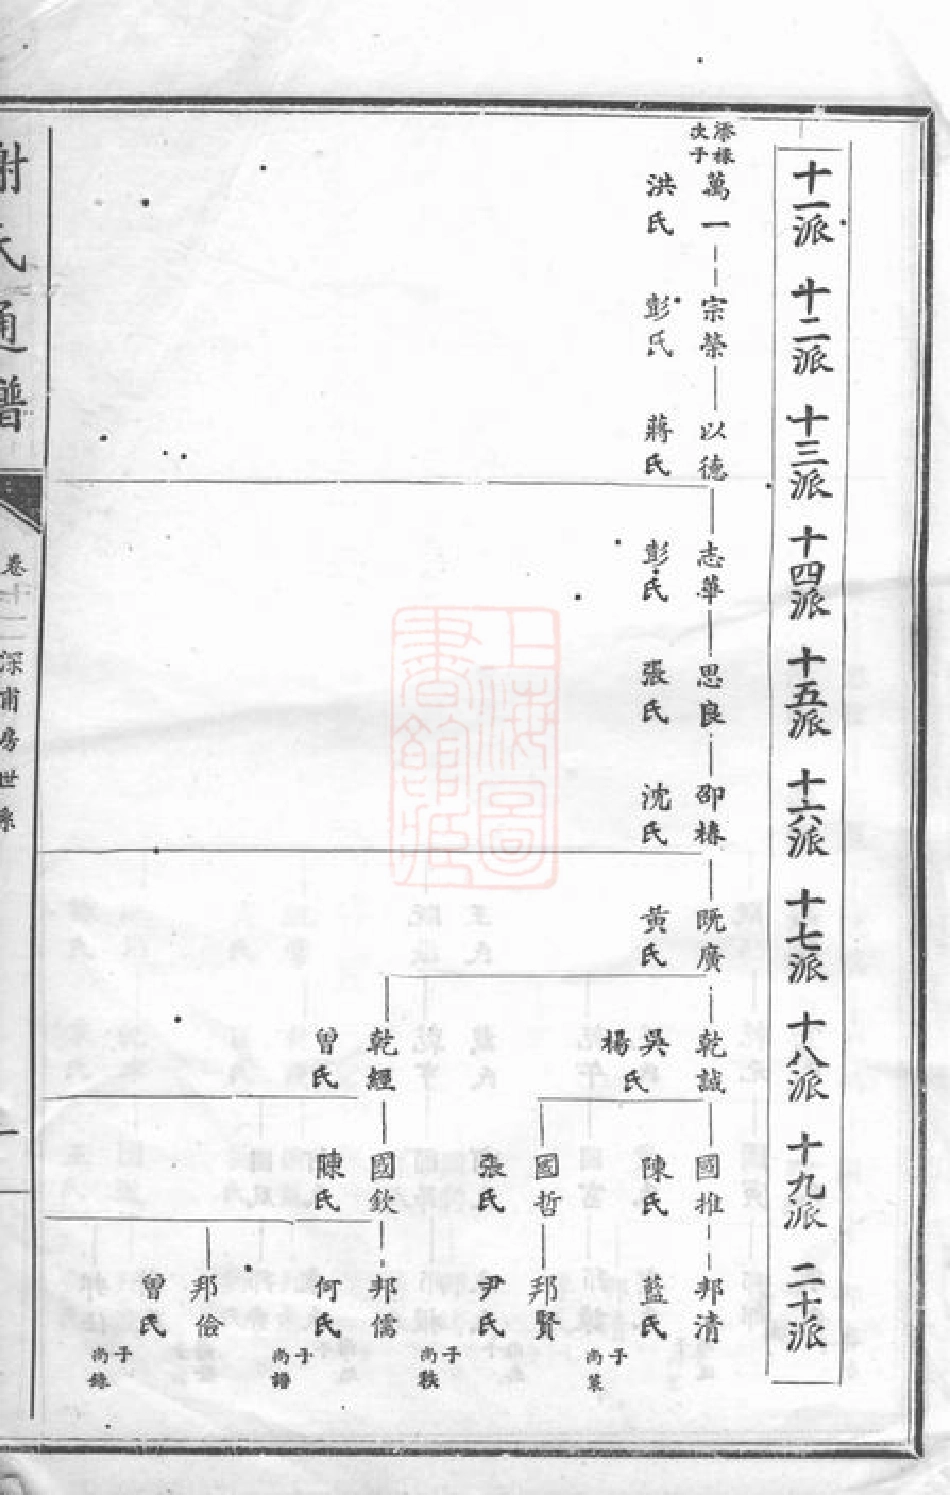 十一派 十二派 十三派 十四派 十五派 十六派 十七派 十八派 十九派 二十派
次子
萬一 宗榮 以德 志華 思良 邵椿 既廣 乾誠 國推 邦清
洪氏 彭氏 蔣氏 彭氏 張氏 沈氏 黃氏 吳楊氏 陳氏 藍氏
子尚
國哲 邦賢
張氏 尹氏
子尚
乾經 國欽 邦儒
曾氏 陳氏 何氏
子尚譜
邦儉
曾氏
子尚
謝氏通譜
卷十一
深甫房世系
上海圖書館藏